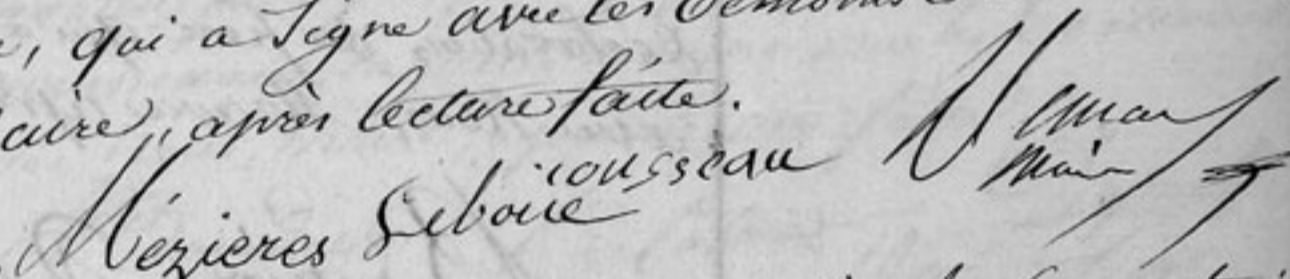 , qui a Signé avec les témoins
aire, après lecture faite.
Mézieres Leboue rousseau